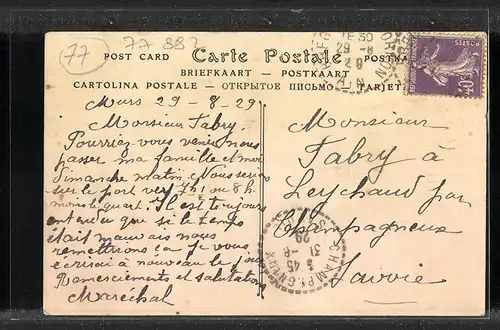 77
77 882
POST CARD Carte Postale POSTKA
BRIEFKAART — POSTKAART
CARTOLINA POSTALE - ОТКРЫТОЕ ПИСЬМО - TARJET
Murs 29-8-29
Monsieur Fabry.
Pourriez-vous venir nous
passer ma famille et moi
dimanche matin. Nous serions
sur le port vers 7h ½ ou 8h.
moins le quart. Il est toujours
entendu que si le temps
était mauvais nous
remettrions car je vous
écrirai à nouveau le jour
Remerciements et salutations
Maréchal
Monsieur
Fabry à
Leychaud par
Champagneux
Savoie
29-8
POSTES
CHAMPAGNEUX
45
31-8
29